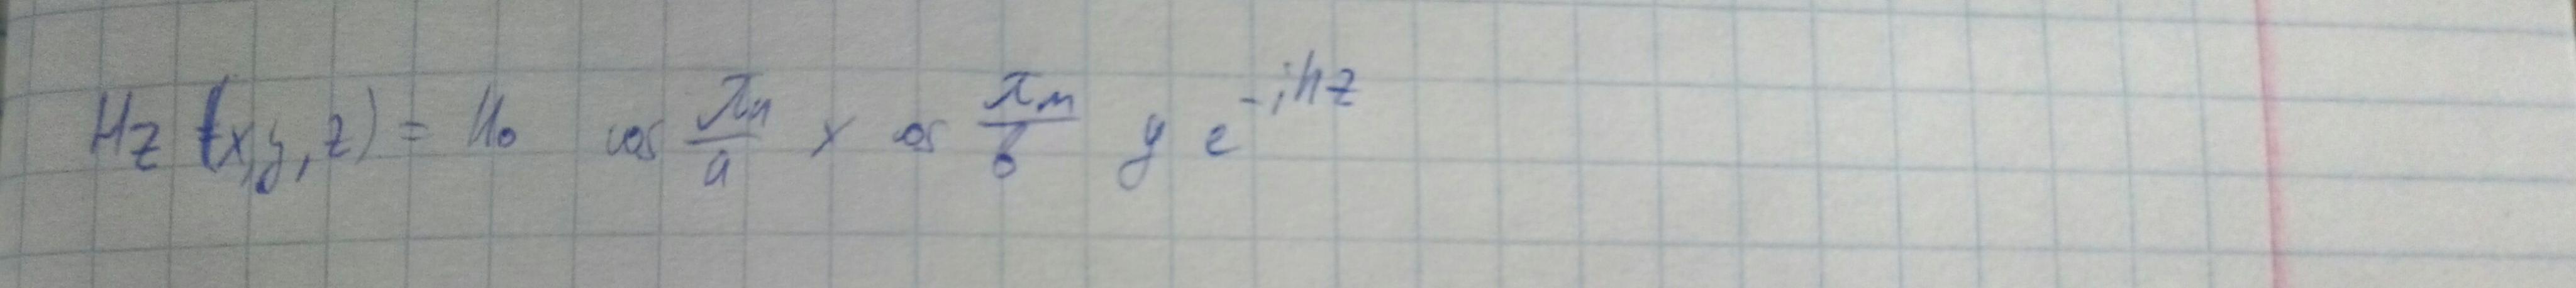 Hz (x,y,z) = H₀ cos \frac{πn}{a} x cos \frac{πm}{b} y e^{-ihz}